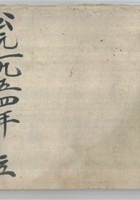 公元一九五四年 立